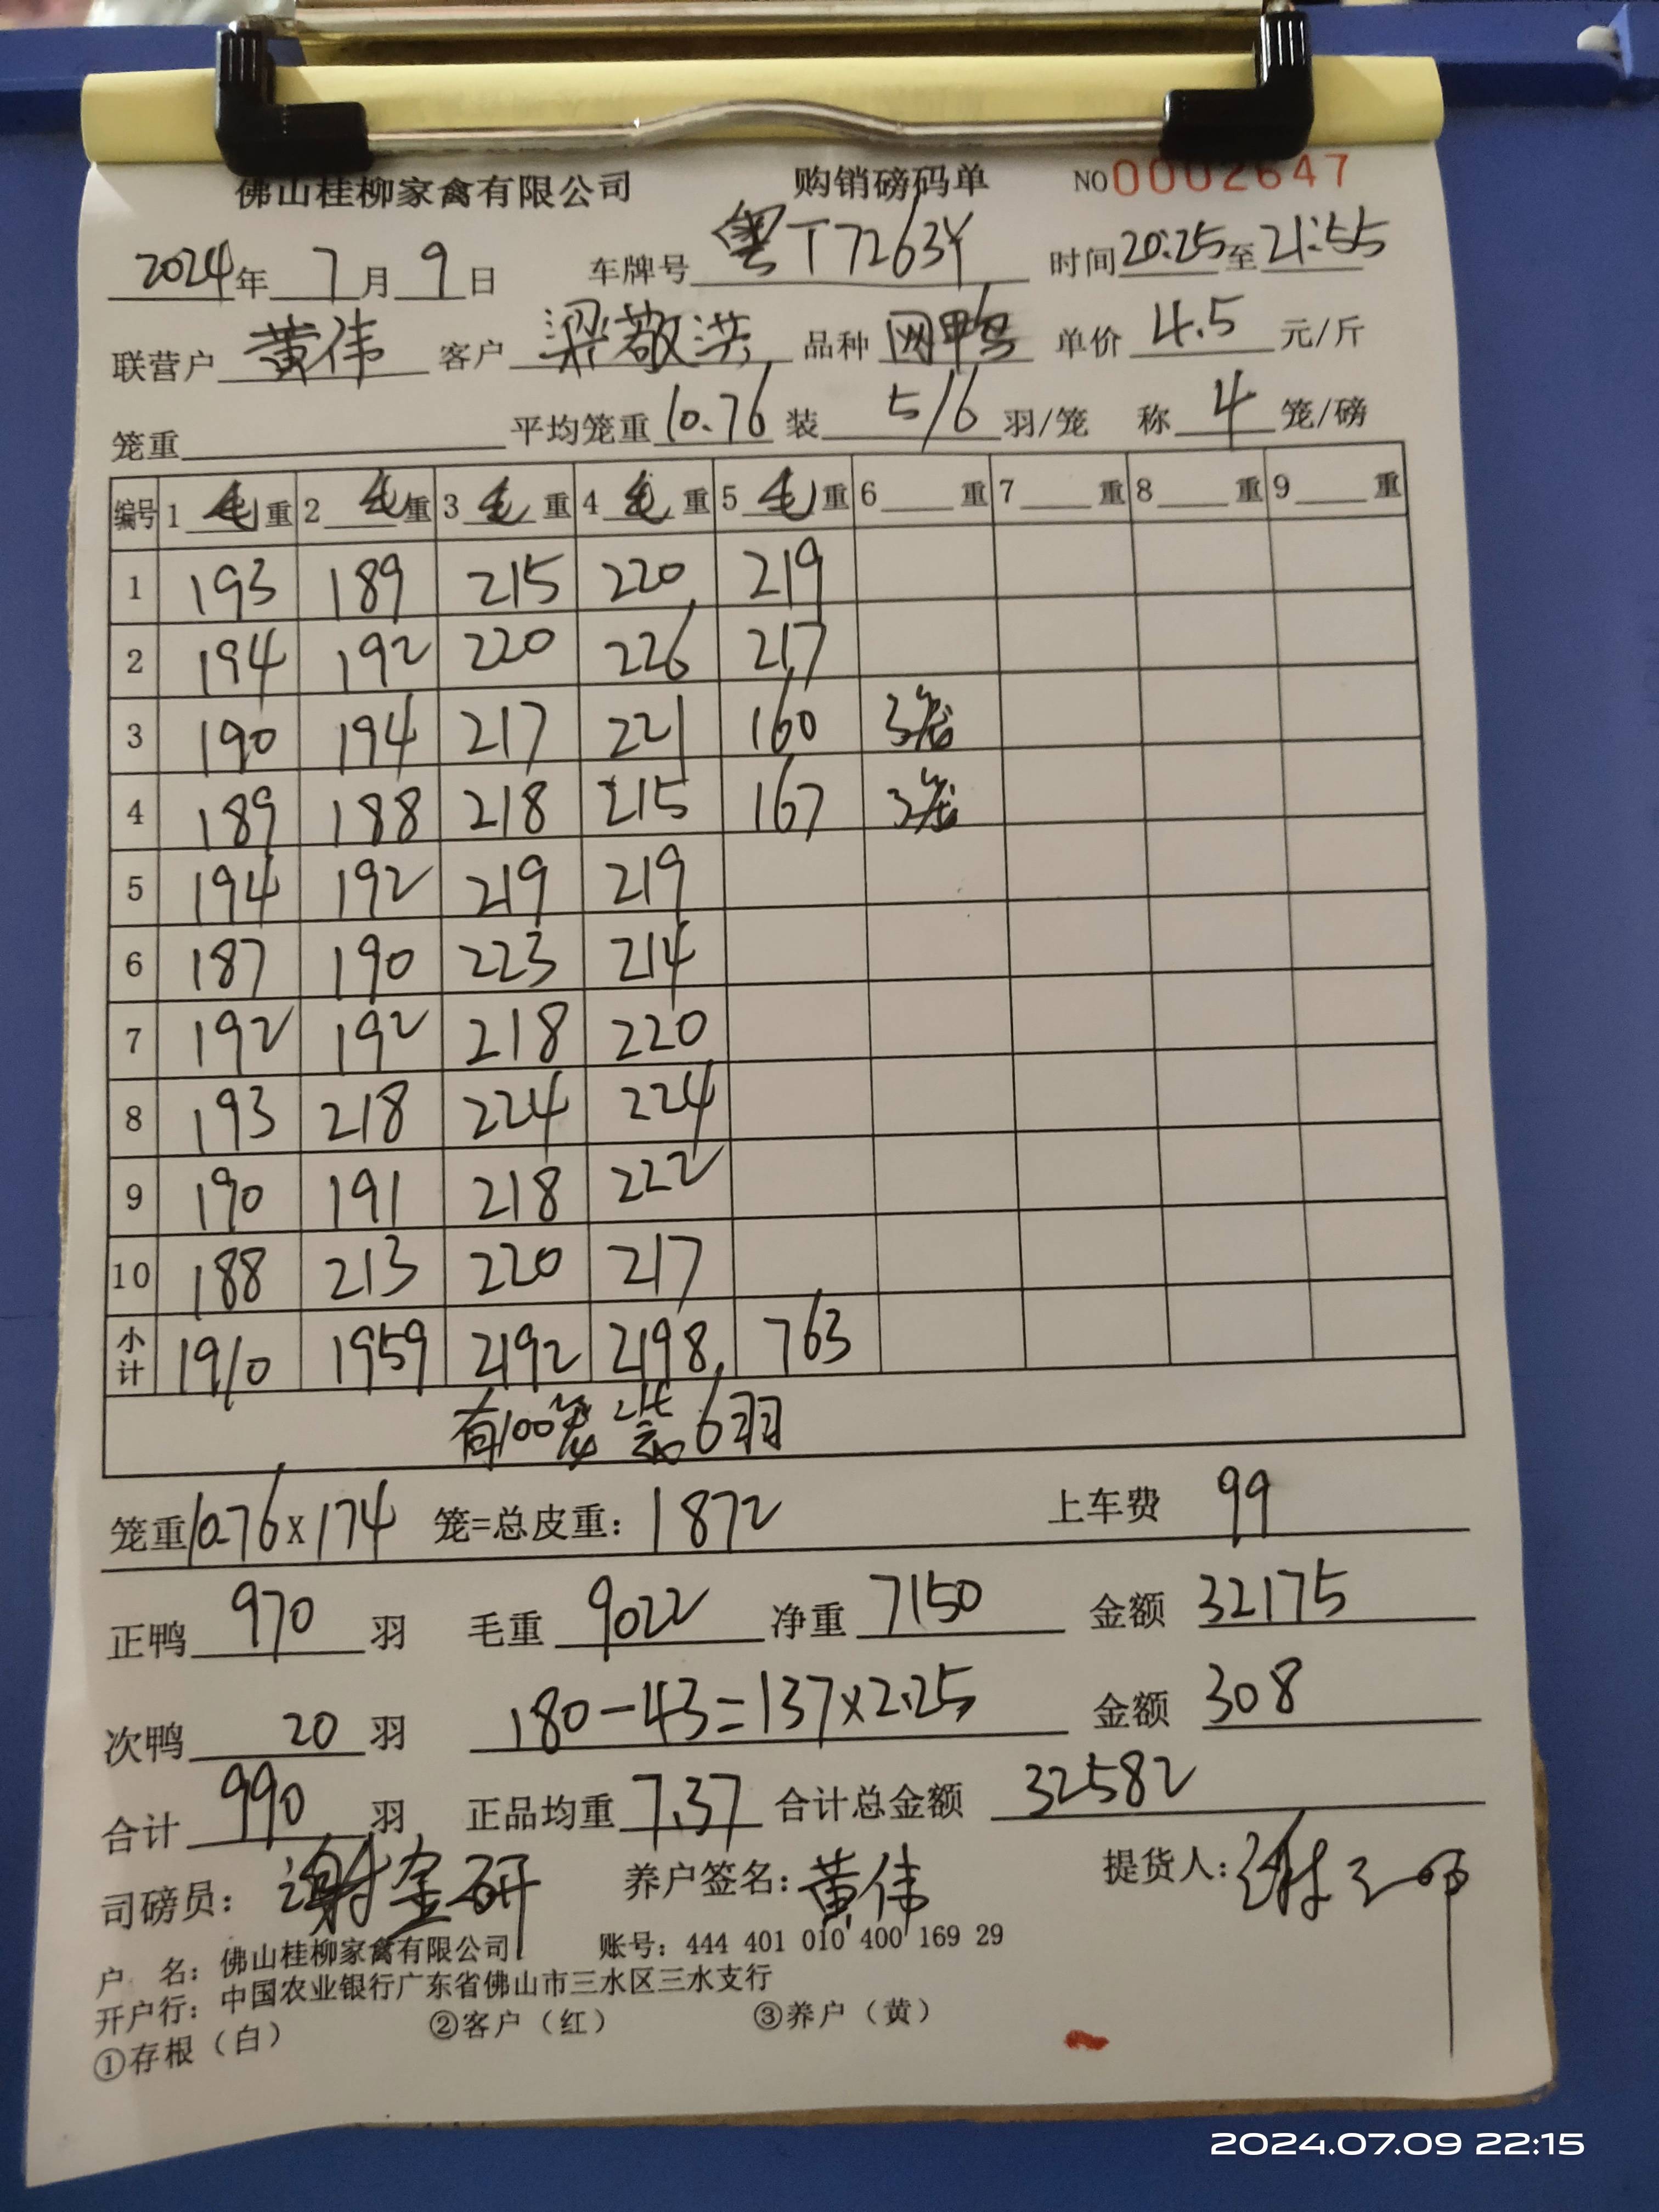 佛山桂柳家禽有限公司 购销磅码单 NO 0002647
2024年 7月 9日 车牌号 粤T7263Y 时间 20:25 至 21:55
联营户 黄伟 客户 梁敬洪 品种 网鸭 单价 4.5 元/斤
笼重 平均笼重 10.76 装 5/6 羽/笼 称 4 笼/磅
编号 1 毛 重 2 毛 重 3 毛 重 4 毛 重 5 毛 重 6 重 7 重 8 重 9 重
1 193 189 215 220 219
2 194 192 220 226 217
3 190 194 217 221 160 3笼
4 189 188 218 215 167 3笼
5 194 192 219 219
6 187 190 223 214
7 192 192 218 220
8 193 218 224 224
9 190 191 218 222
10 188 213 220 217
小计 1910 1959 2192 2198 763
有100笼装6羽
笼重 10.76 x 174 笼=总皮重: 1872 上车费 99
正鸭 970 羽 毛重 9022 净重 7150 金额 32175
次鸭 20 羽 180-43=137x2.25 金额 308
合计 990 羽 正品均重 7.37 合计总金额 32582
司磅员: 谢金研 养户签名: 黄伟 提货人:
户 名: 佛山桂柳家禽有限公司 账号: 444 401 010 400 169 29
开户行: 中国农业银行广东省佛山市三水区三水支行
①存根（白） ②客户（红） ③养户（黄）
2024.07.09 22:15